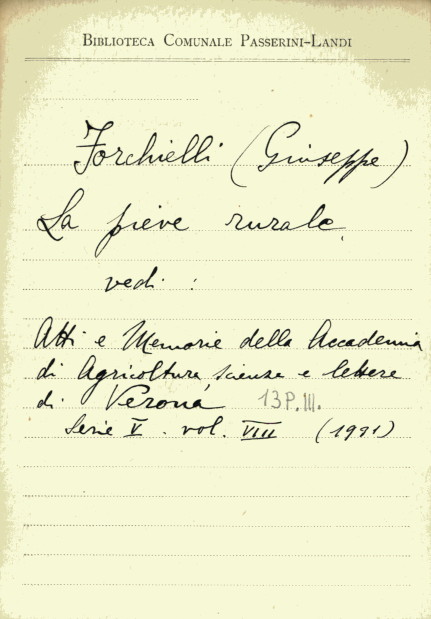 BIBLIOTECA COMUNALE PASSERINI-LANDI
Forchielli (Giuseppe)
La pieve rurale
vedi :
Atti e Memorie della Accademia
di Agricoltura, scienze e lettere
di Verona 13 P. III.
Serie V. vol. VIII (1931)